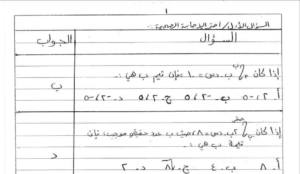 ١
السؤال الأول / اختر الإجابة الصحيحة :
السؤال
الجواب
إذا كان ب دس = ١٠ فإن قيم ب هي :
ب
أ. ٢،٥ ب. -٢،٥ ج. ٥،٢ د. -٢،-٥
إذا كان ٢ب دس = ٨ حيث ب عدد حقيقي موجب، فإن
قيمة ب هي :
د
أ. ٨ ب. ٤ ج. ٨√ د. ٢